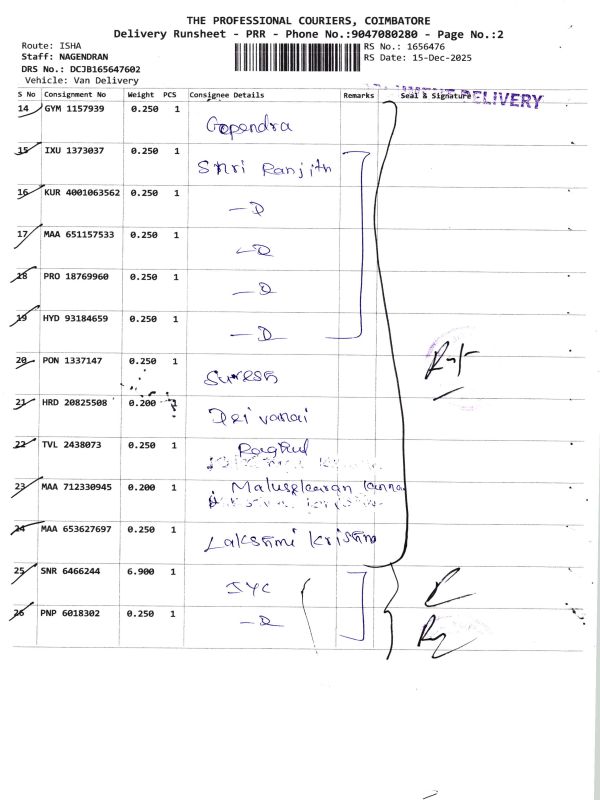 THE PROFESSIONAL COURIERS, COIMBATORE
Delivery Runsheet - PRR - Phone No.:9047080280 - Page No.:2
Route: ISHA
Staff: NAGENDRAN
DRS No.: DCJB165647602
Vehicle: Van Delivery
RS No.: 1656476
RS Date: 15-Dec-2025
S No Consignment No Weight PCS Consignee Details Remarks Seal & Signature
DELIVERY
14 GYM 1157939 0.250 1 Gopendra
15 IXU 1373037 0.250 1 Shri Ranjith
16 KUR 4001063562 0.250 1 —D
17 MAA 651157533 0.250 1 —D
18 PRO 18769960 0.250 1 —D
19 HYD 93184659 0.250 1 —D
20 PON 1337147 0.250 1 Suresh
21 HRD 20825508 0.200 Deivanai
22 TVL 2438073 0.250 1 Raghul
23 MAA 712330945 0.200 1
24 MAA 653627697 0.250 1 Lakshmi Krishna
25 SNR 6466244 6.900 1 IYC
26 PNP 6018302 0.250 1 —D